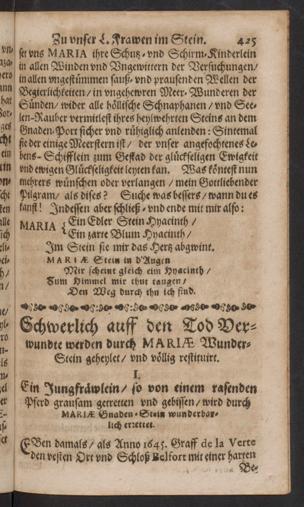 Zu vnser L. Frawen im Stein. 425
ser vns MARIA ihre Schutz- vnd Schirm-Kinderlein
in allen Winden vnd Vngewittern der Versuchungen/
in allen vngestümmen sauß- vnd prausenden Wellen der
Begierlichkeiten/ in vngehewren Meer-Wunderen der
Sünden/ wider alle höllische Schnaphanen/ vnd See-
len-Rauber vermitlest ihres heylwehrten Steins an dem
Gnaden-Port sicher vnd rühiglich anlenden: Sintemal
sie der einige Meerstern ist/ der vnser angefochtenes Le-
bens-Schifflein zum Gestad der glückseligen Ewigkeit
vnd ewigen Glückseligkeit leyten kan. Was köntest nun
mehrers wünschen oder verlangen/ mein Gottliebender
Pilgram/ als dises? Suche was bessers/ wann du es
kanst! Indessen aber schließ- vnd ende mit mir also:
Ein Edler Stein Hyacinth/
MARIA
Ein zarte Blum Hyacinth/
Im Stein sie mir das Hertz abgwint.
MARIÆ Stein in d'Augen
Mir scheint gleich eim Hyacinth/
Zum Himmel mir thut taugen/
Den Weg durch ihn ich find.
Schwerlich auff den Tod Ver-
wundte werden durch MARIÆ Wunder-
Stein geheylet/ vnd völlig restituirt.
I.
Ein Jungfräwlein/ so von einem rasenden
Pferd grausam getretten vnd gebissen/ wird durch
MARIÆ Gnaden-Stein wunderbar-
lich errettet.
EBen damals/ als Anno 1645. Graff de la Verte
den vesten Ort vnd Schloß Belfort mit einer harten
Be-